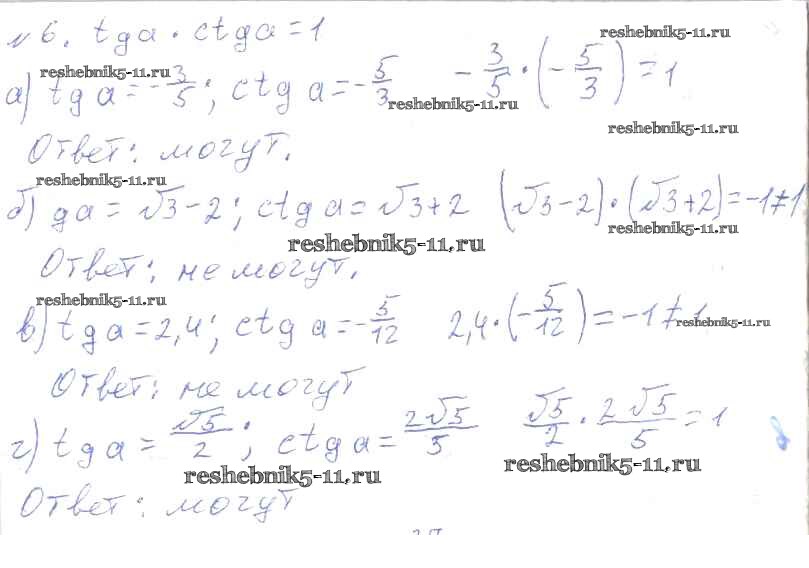 №6. tg a · ctg a = 1 reshebnik5-11.ru
reshebnik5-11.ru
а) tg a = -3/5; ctg a = -5/3 -3/5 · (-5/3) = 1
reshebnik5-11.ru
reshebnik5-11.ru
Ответ: могут.
reshebnik5-11.ru
б) ga = √3-2; ctg a = √3+2 (√3-2)·(√3+2)=-1≠1
reshebnik5-11.ru
reshebnik5-11.ru
Ответ: не могут.
reshebnik5-11.ru
в) tg a = 2,4; ctg a = -5/12 2,4·(-5/12) = -1≠1
reshebnik5-11.ru
Ответ: не могут
г) tg a = √5/2; ctg a = 2√5/5 √5/2 · 2√5/5 = 1
reshebnik5-11.ru reshebnik5-11.ru
Ответ: могут